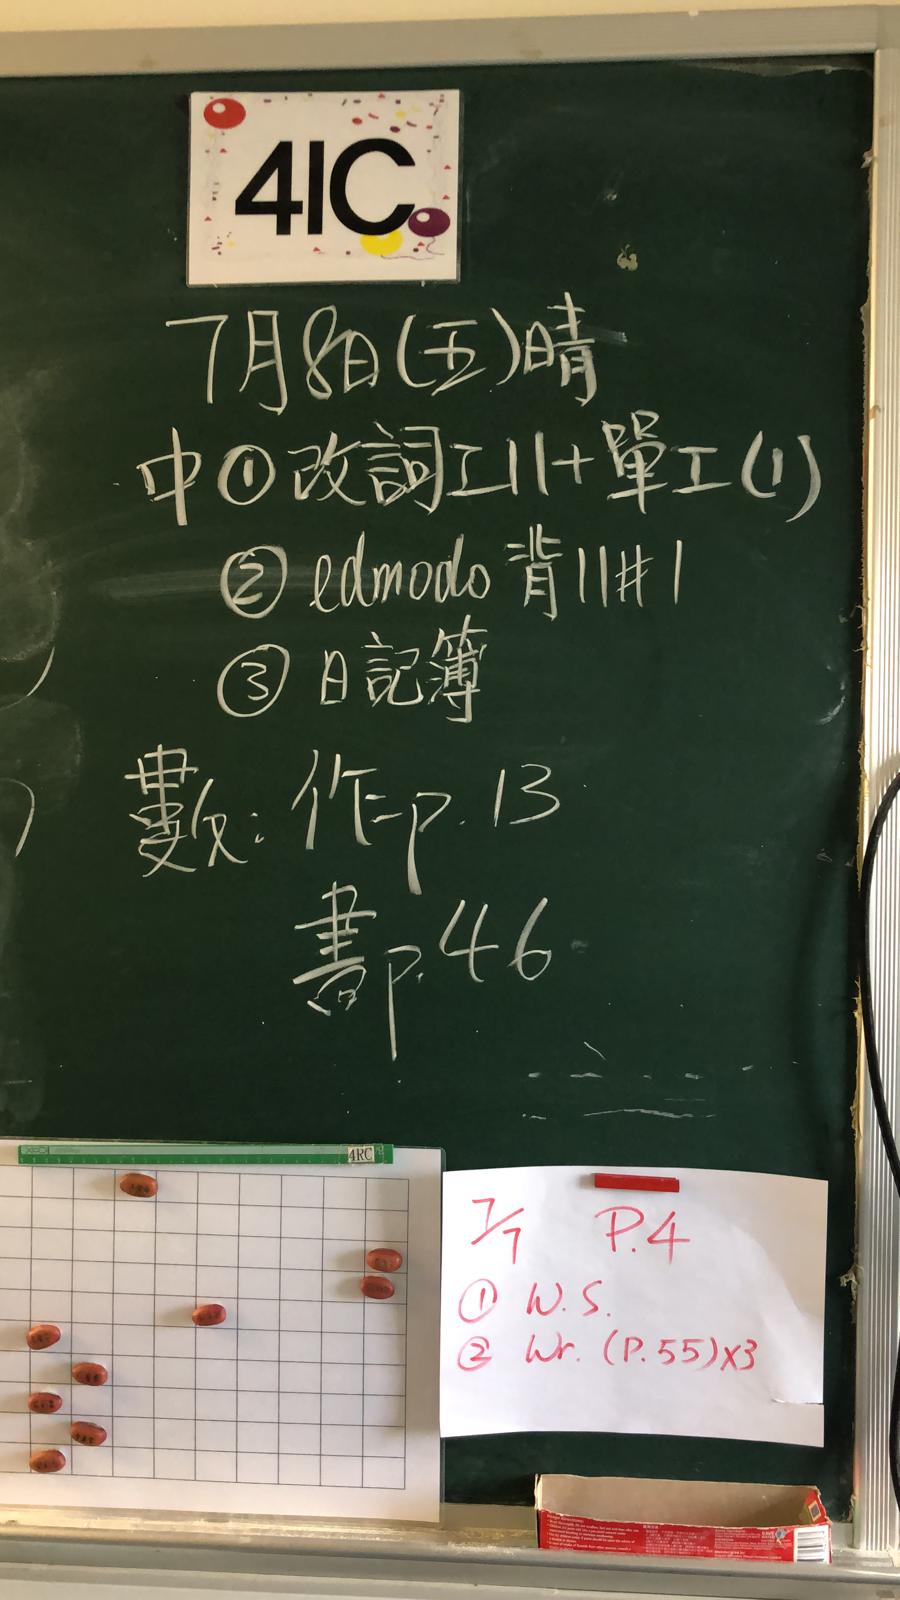 41C
7月8日(五)晴
中①改詞工11+單工(1)
②edmodo 背11#1
③日記簿
數:作p.13
書p.46
4RC
7/7 P.4
① W.S.
② Wr. (P.55)x3